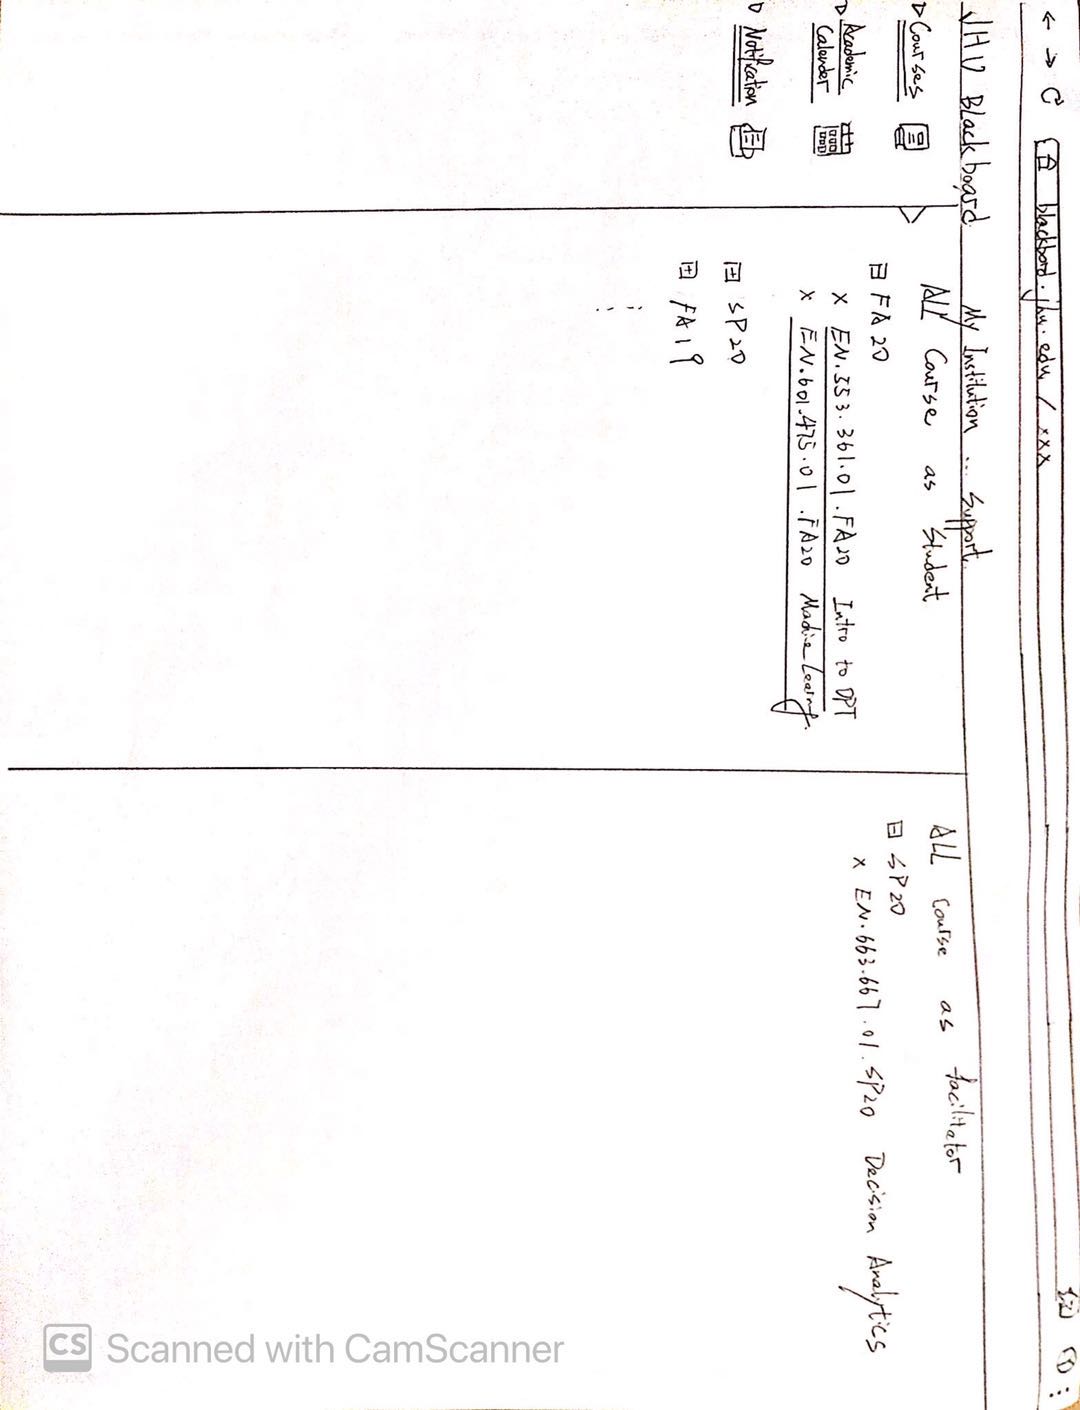 blackbord.jhu.edu / xxx
JHU Blackboard My Institution ... Support
Courses
Academic
Calender
Notification
ALL Course as Student
FA20
x EN.553.361.01.FA20 Intro to OPT
x EN.601.475.01.FA20 Machine Learning.
SP20
FA19
ALL Course as facilitator
SP20
x EN.663.667.01.SP20 Decision Analytics
CS Scanned with CamScanner